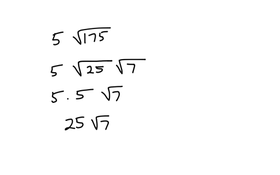 5 √175
5 √25 √7
5 · 5 √7
25 √7